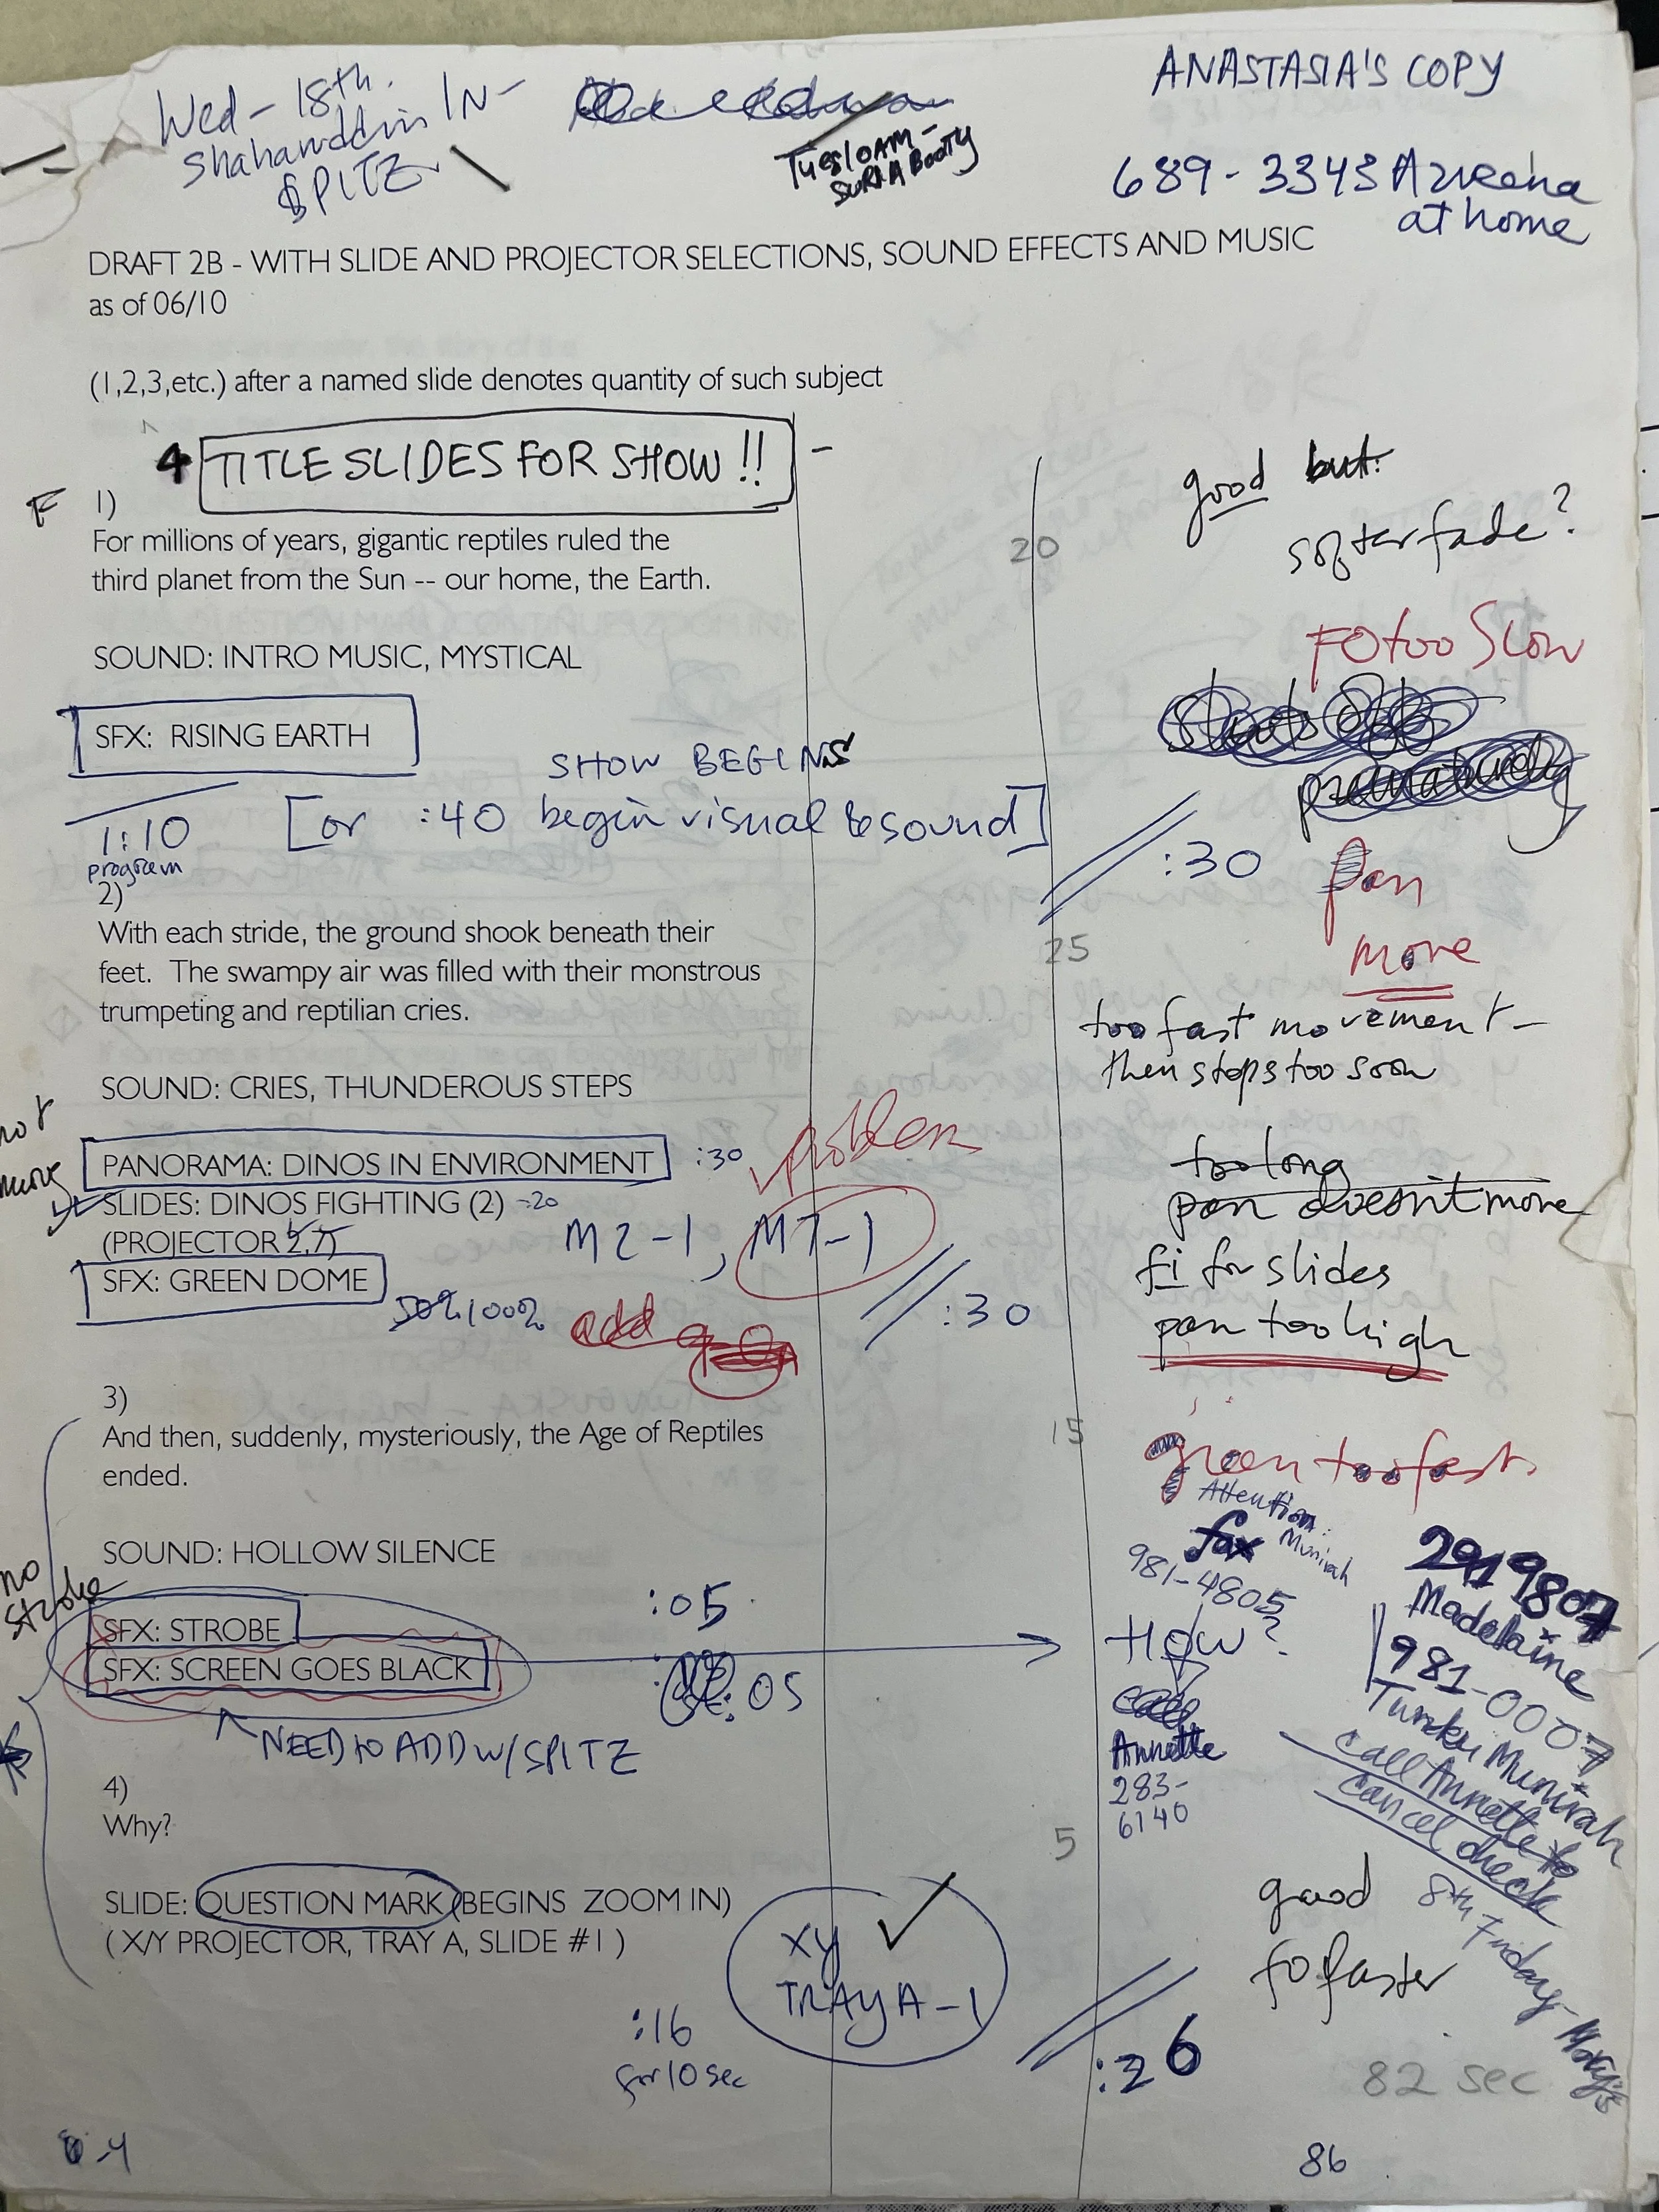 Wed - 18th.
Shaharuddin IN -
SPITZ
TUES 10AM -
ANASTASIA'S COPY
689 - 3343 Azreena
at home
DRAFT 2B - WITH SLIDE AND PROJECTOR SELECTIONS, SOUND EFFECTS AND MUSIC
as of 06/10
(1,2,3,etc.) after a named slide denotes quantity of such subject
4 TITLE SLIDES FOR SHOW !! -
F 1)
For millions of years, gigantic reptiles ruled the
third planet from the Sun -- our home, the Earth.
20
good but:
softer fade?
SOUND: INTRO MUSIC, MYSTICAL
FO too Slow
SFX: RISING EARTH
prematurely
SHOW BEGINS
1:10
program
[or :40 begin visual & sound]
:30
pan
move
2)
With each stride, the ground shook beneath their
feet. The swampy air was filled with their monstrous
trumpeting and reptilian cries.
25
too fast movement -
then stops too soon
SOUND: CRIES, THUNDEROUS STEPS
not
PANORAMA: DINOS IN ENVIRONMENT :30
problem
SLIDES: DINOS FIGHTING (2) :20
(PROJECTOR 2,7)
M2-1, M7-1
SFX: GREEN DOME
50% 100%
add
:30
too long
pan doesn't move
fi for slides
pan too high
3)
And then, suddenly, mysteriously, the Age of Reptiles
ended.
15
green too fast.
SOUND: HOLLOW SILENCE
Attention:
Munirah
fax
981-4805
no
strobe
SFX: STROBE
:05
SFX: SCREEN GOES BLACK
:05
HOW?
call
Annette
283-
6140
NEED to ADD w/ SPITZ
2919807
Madelaine
981-0007
Tunku Munirah
call Annette to
cancel check
8th Friday -
4)
Why?
5
SLIDE: QUESTION MARK (BEGINS ZOOM IN)
( X/Y PROJECTOR, TRAY A, SLIDE #1 )
xy
TRAY A-1
good
fo faster
:16
for 10 sec
:26
82 sec
86